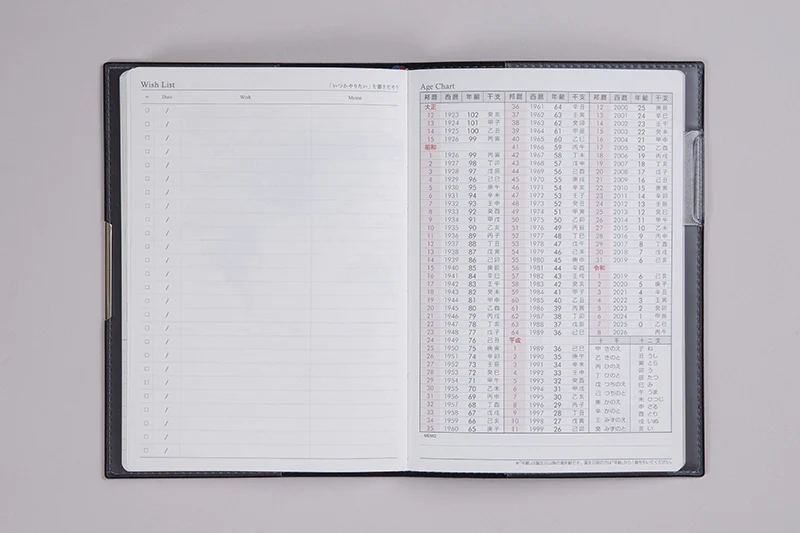 Wish List
「いつかやりたい」を書きだそう
Date Wish Memo
Age Chart
邦暦 西暦 年齢 干支 邦暦 西暦 年齢 干支 邦暦 西暦 年齢 干支
大正
12 1923 102 癸亥
13 1924 101 甲子
14 1925 100 乙丑
15 1926 99 丙寅
昭和
1 1926 99 丙寅
2 1927 98 丁卯
3 1928 97 戊辰
4 1929 96 己巳
5 1930 95 庚午
6 1931 94 辛未
7 1932 93 壬申
8 1933 92 癸酉
9 1934 91 甲戌
10 1935 90 乙亥
11 1936 89 丙子
12 1937 88 丁丑
13 1938 87 戊寅
14 1939 86 己卯
15 1940 85 庚辰
16 1941 84 辛巳
17 1942 83 壬午
18 1943 82 癸未
19 1944 81 甲申
20 1945 80 乙酉
21 1946 79 丙戌
22 1947 78 丁亥
23 1948 77 戊子
24 1949 76 己丑
25 1950 75 庚寅
26 1951 74 辛卯
27 1952 73 壬辰
28 1953 72 癸巳
29 1954 71 甲午
30 1955 70 乙未
31 1956 69 丙申
32 1957 68 丁酉
33 1958 67 戊戌
34 1959 66 己亥
35 1960 65 庚子
36 1961 64 辛丑
37 1962 63 壬寅
38 1963 62 癸卯
39 1964 61 甲辰
40 1965 60 乙巳
41 1966 59 丙午
42 1967 58 丁未
43 1968 57 戊申
44 1969 56 己酉
45 1970 55 庚戌
46 1971 54 辛亥
47 1972 53 壬子
48 1973 52 癸丑
49 1974 51 甲寅
50 1975 50 乙卯
51 1976 49 丙辰
52 1977 48 丁巳
53 1978 47 戊午
54 1979 46 己未
55 1980 45 庚申
56 1981 44 辛酉
57 1982 43 壬戌
58 1983 42 癸亥
59 1984 41 甲子
60 1985 40 乙丑
61 1986 39 丙寅
62 1987 38 丁卯
63 1988 37 戊辰
64 1989 36 己巳
平成
1 1989 36 己巳
2 1990 35 庚午
3 1991 34 辛未
4 1992 33 壬申
5 1993 32 癸酉
6 1994 31 甲戌
7 1995 30 乙亥
8 1996 29 丙子
9 1997 28 丁丑
10 1998 27 戊寅
11 1999 26 己卯
12 2000 25 庚辰
13 2001 24 辛巳
14 2002 23 壬午
15 2003 22 癸未
16 2004 21 甲申
17 2005 20 乙酉
18 2006 19 丙戌
19 2007 18 丁亥
20 2008 17 戊子
21 2009 16 己丑
22 2010 15 庚寅
23 2011 14 辛卯
24 2012 13 壬辰
25 2013 12 癸巳
26 2014 11 甲午
27 2015 10 乙未
28 2016 9 丙申
29 2017 8 丁酉
30 2018 7 戊戌
31 2019 6 己亥
令和
1 2019 6 己亥
2 2020 5 庚子
3 2021 4 辛丑
4 2022 3 壬寅
5 2023 2 癸卯
6 2024 1 甲辰
7 2025 0 乙巳
8 2026 丙午
十干
甲 きのえ
乙 きのと
丙 ひのえ
丁 ひのと
戊 つちのえ
己 つちのと
庚 かのえ
辛 かのと
壬 みずのえ
癸 みずのと
十二支
子 ね
丑 うし
寅 とら
卯 う
辰 たつ
巳 み
午 うま
未 ひつじ
申 さる
酉 とり
戌 いぬ
亥 い
MEMO
※「年齢」は誕生日以降の満年齢です。誕生日前の方は「年齢」から1歳を引いてください。